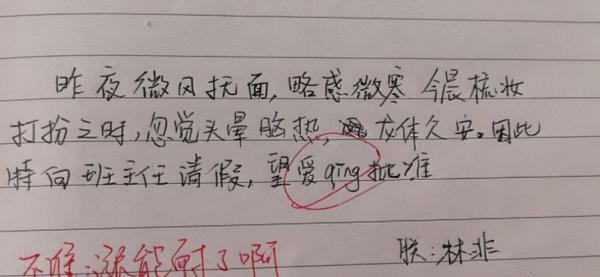 昨夜微风抚面,略感微寒 今晨梳妆
打扮之时,忽觉头晕脑热,龙体久安。因此
特向班主任请假,望爱qing批准
朕:林非
不准:涨能耐了啊